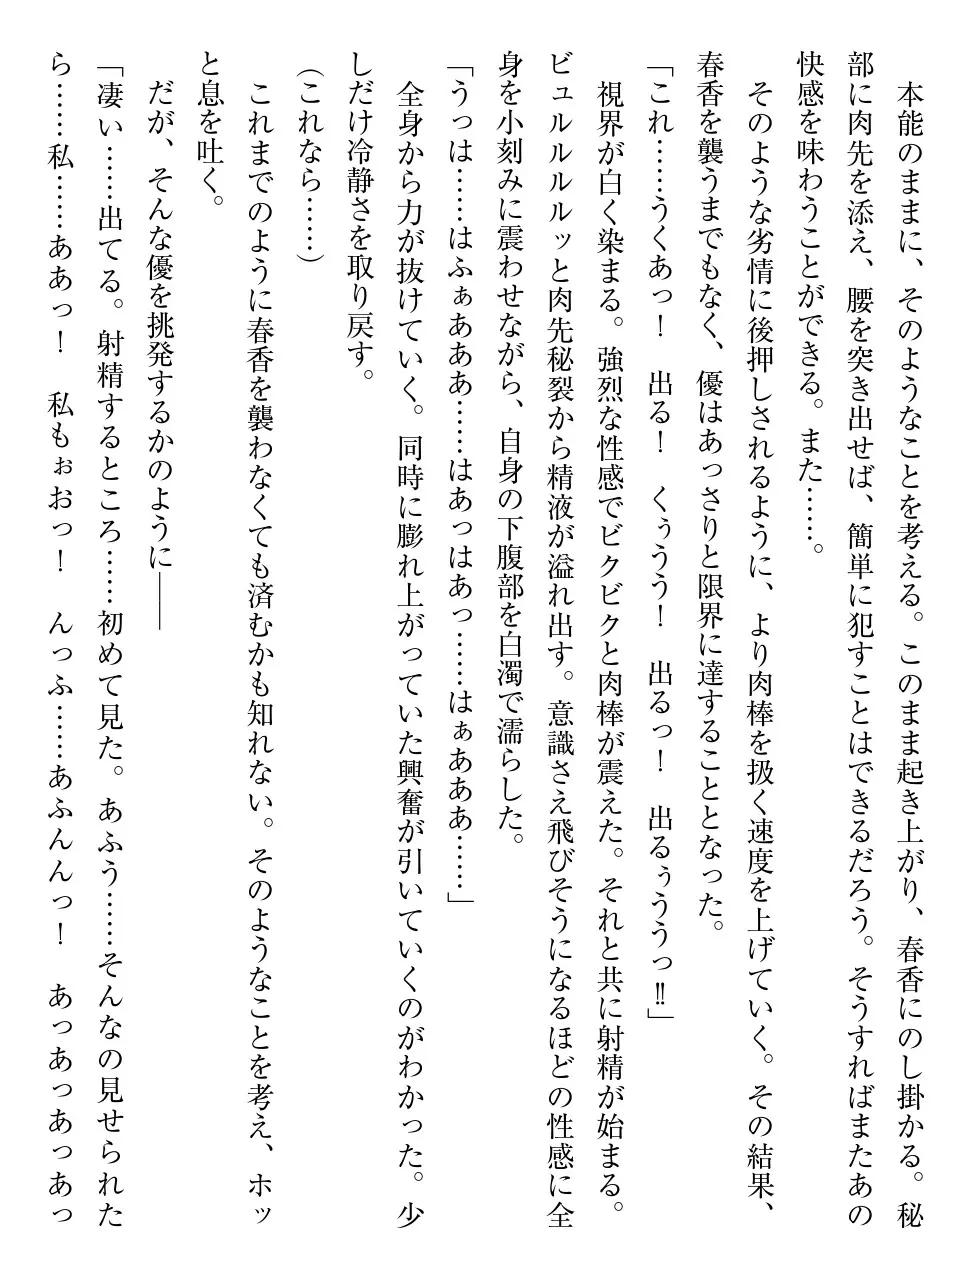 本能のままに、そのようなことを考える。このまま起き上がり、春香にのし掛かる。秘
部に肉先を添え、腰を突き出せば、簡単に犯すことはできるだろう。そうすればまたあの
快感を味わうことができる。また……。
　そのような劣情に後押しされるように、より肉棒を扱く速度を上げていく。その結果、
春香を襲うまでもなく、優はあっさりと限界に達することとなった。
「これ……うくあっ！　出る！　くぅうう！　出るっ！　出るぅううっ‼」
　視界が白く染まる。強烈な性感でビクビクと肉棒が震えた。それと共に射精が始まる。
ビュルルルルッと肉先秘裂から精液が溢れ出す。意識さえ飛びそうになるほどの性感に全
身を小刻みに震わせながら、自身の下腹部を白濁で濡らした。
「うっは……はふぁあああ……はあっはあっ……はぁあああ……」
　全身から力が抜けていく。同時に膨れ上がっていた興奮が引いていくのがわかった。少
しだけ冷静さを取り戻す。
（これなら……）
　これまでのように春香を襲わなくても済むかも知れない。そのようなことを考え、ホッ
と息を吐く。
　だが、そんな優を挑発するかのように――
「凄い……出てる。射精するところ……初めて見た。あふう……そんなの見せられた
ら……私……ああっ！　私もぉおっ！　んっふ……あふんんっ！　あっあっあっあっあっ